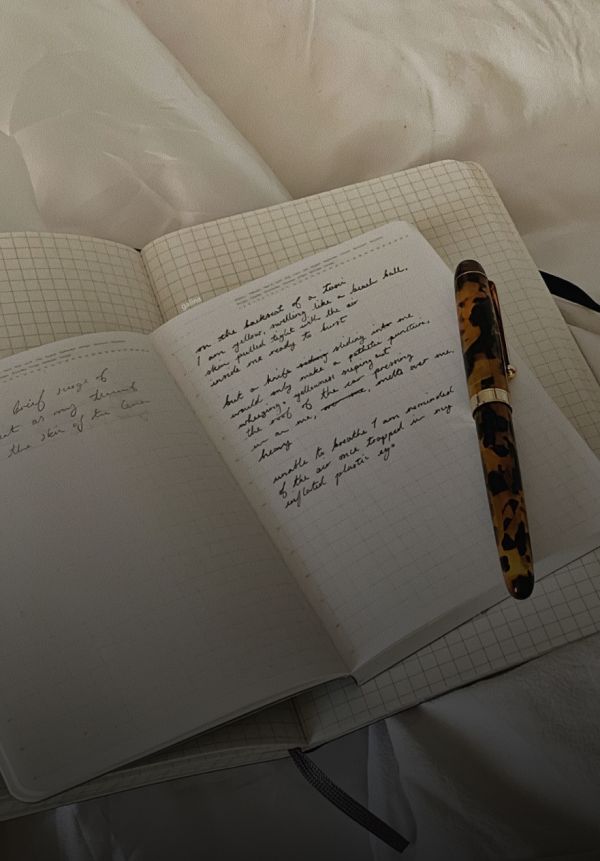 brief surge of
as my
the skin of the
Galina
on the backseat of a
I am yellow, swelling like a beach ball,
skin pulled tight with the air
inside me ready to burst
but a knife sliding into me
would only make a pathetic puncture,
wheezing, yellowness seeping out
the roof of the car pressing
in on me, melts over me,
heavy
unable to breathe I am reminded
of the air once trapped in my
inflated plastic